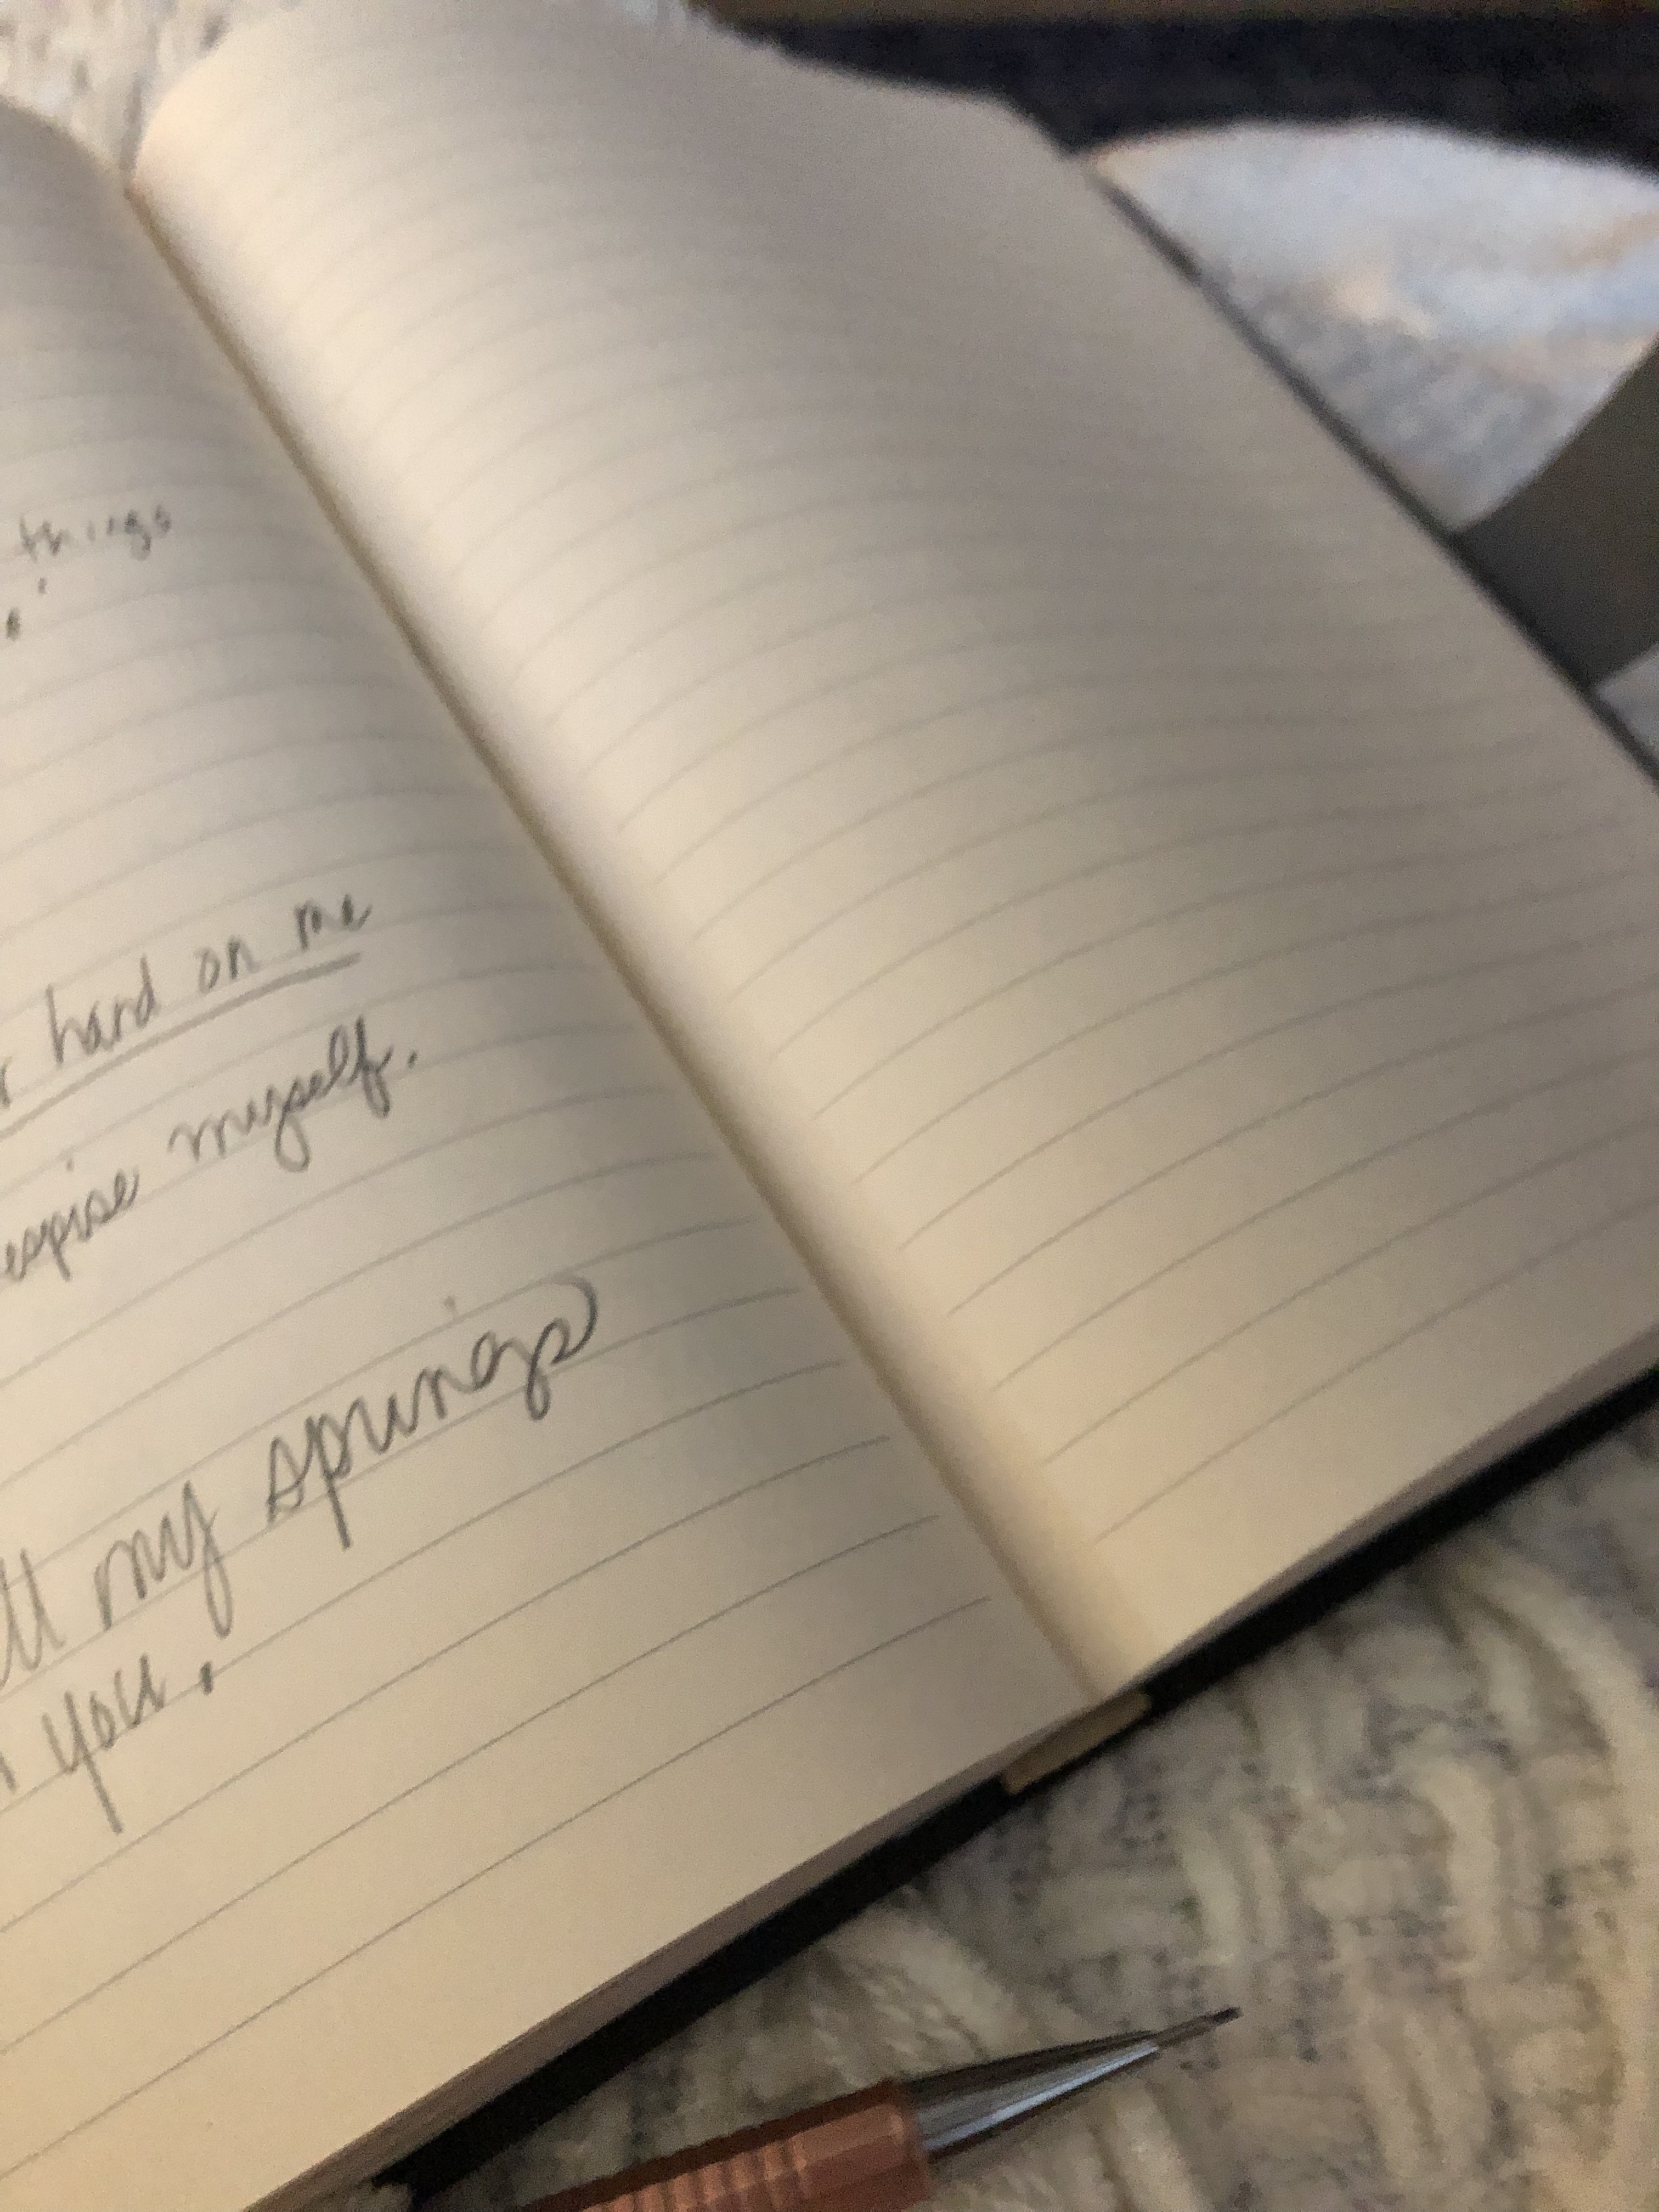 things
hard on me
myself.
my springs
you.